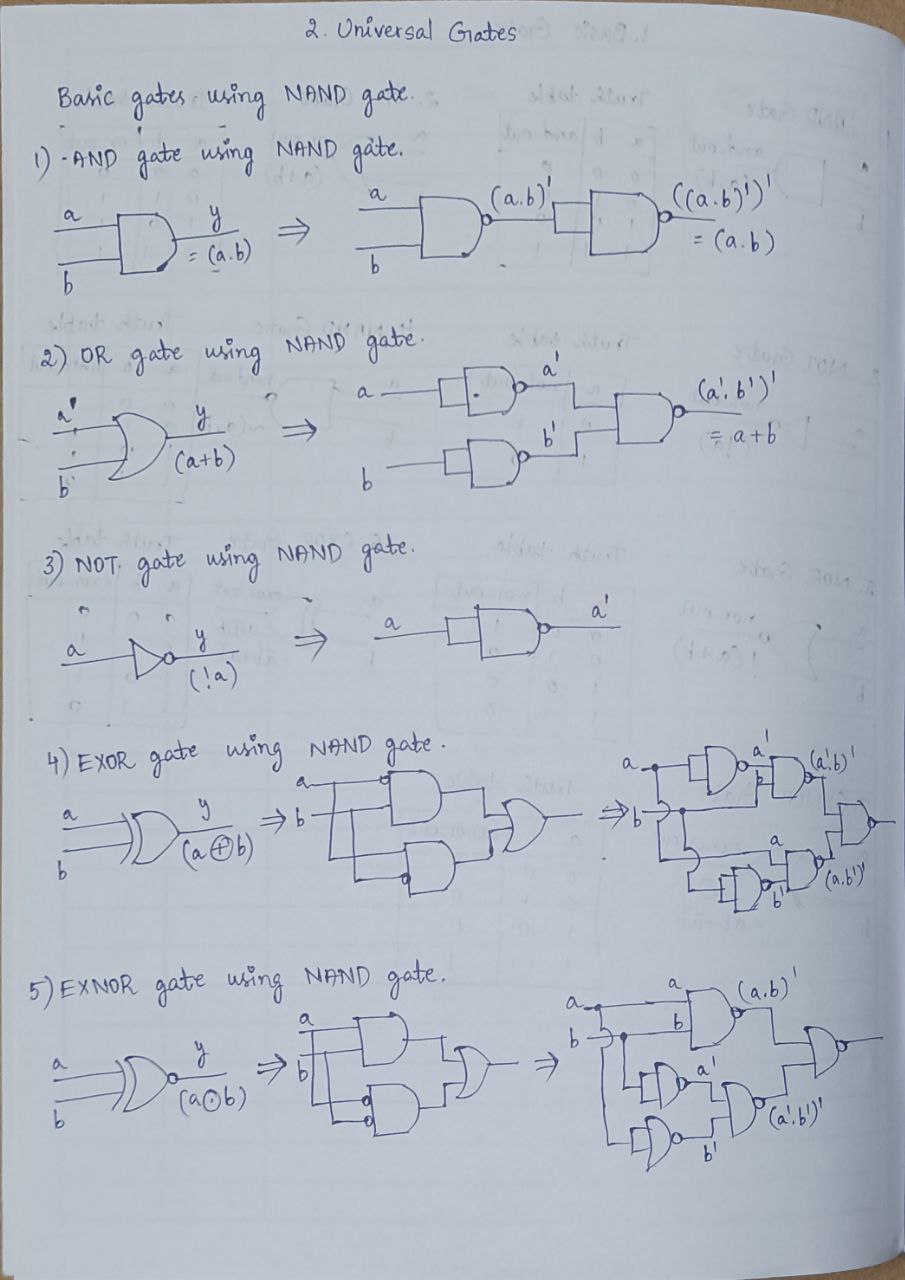 2. Universal Gates
Basic gates using NAND gate.
1) AND gate using NAND gate.
a y ⇒ a (a.b)' ((a.b)')'
b = (a.b) b = (a.b)
2) OR gate using NAND gate.
a y ⇒ a a' (a'.b')'
b (a+b) b b' = a+b
3) NOT gate using NAND gate.
a y ⇒ a a'
(!a)
4) EXOR gate using NAND gate.
a y ⇒ a ⇒ a a' (a'.b)'
b (a⊕b) b b b
a (a.b')'
b'
5) EXNOR gate using NAND gate.
a y ⇒ a ⇒ a a (a.b)'
b (a⊙b) b b b
a' (a'.b')'
b'